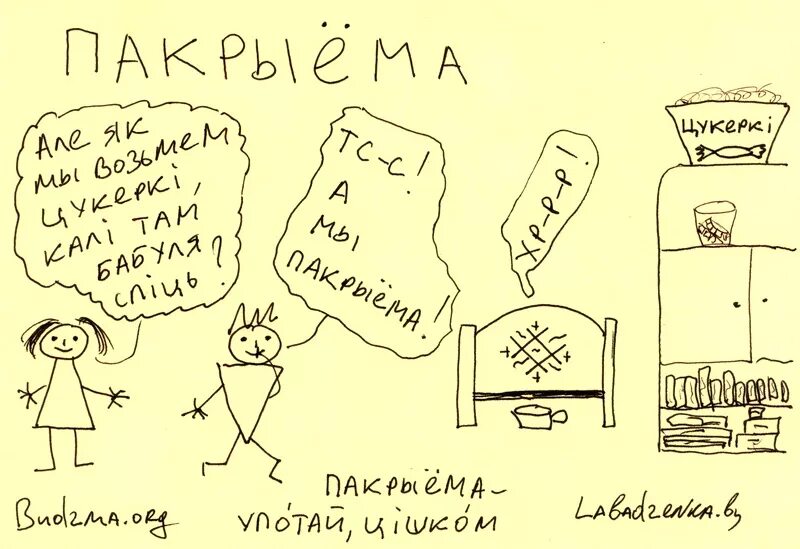 ПАКРЫЁМА
АЛЕ ЯК
МЫ ВОЗЬМЕМ
ЦУКЕРКІ,
КАЛІ ТАМ
БАБУЛЯ
СПІЦЬ?
ТС-С!
А
МЫ
ПАКРЫЁМА!
ХР-Р-Р!
ЦУКЕРКІ
ПАКРЫЁМА-
УПО́ТАЙ, ЦІШКО́М
Budzma.org
Labadzenka.by